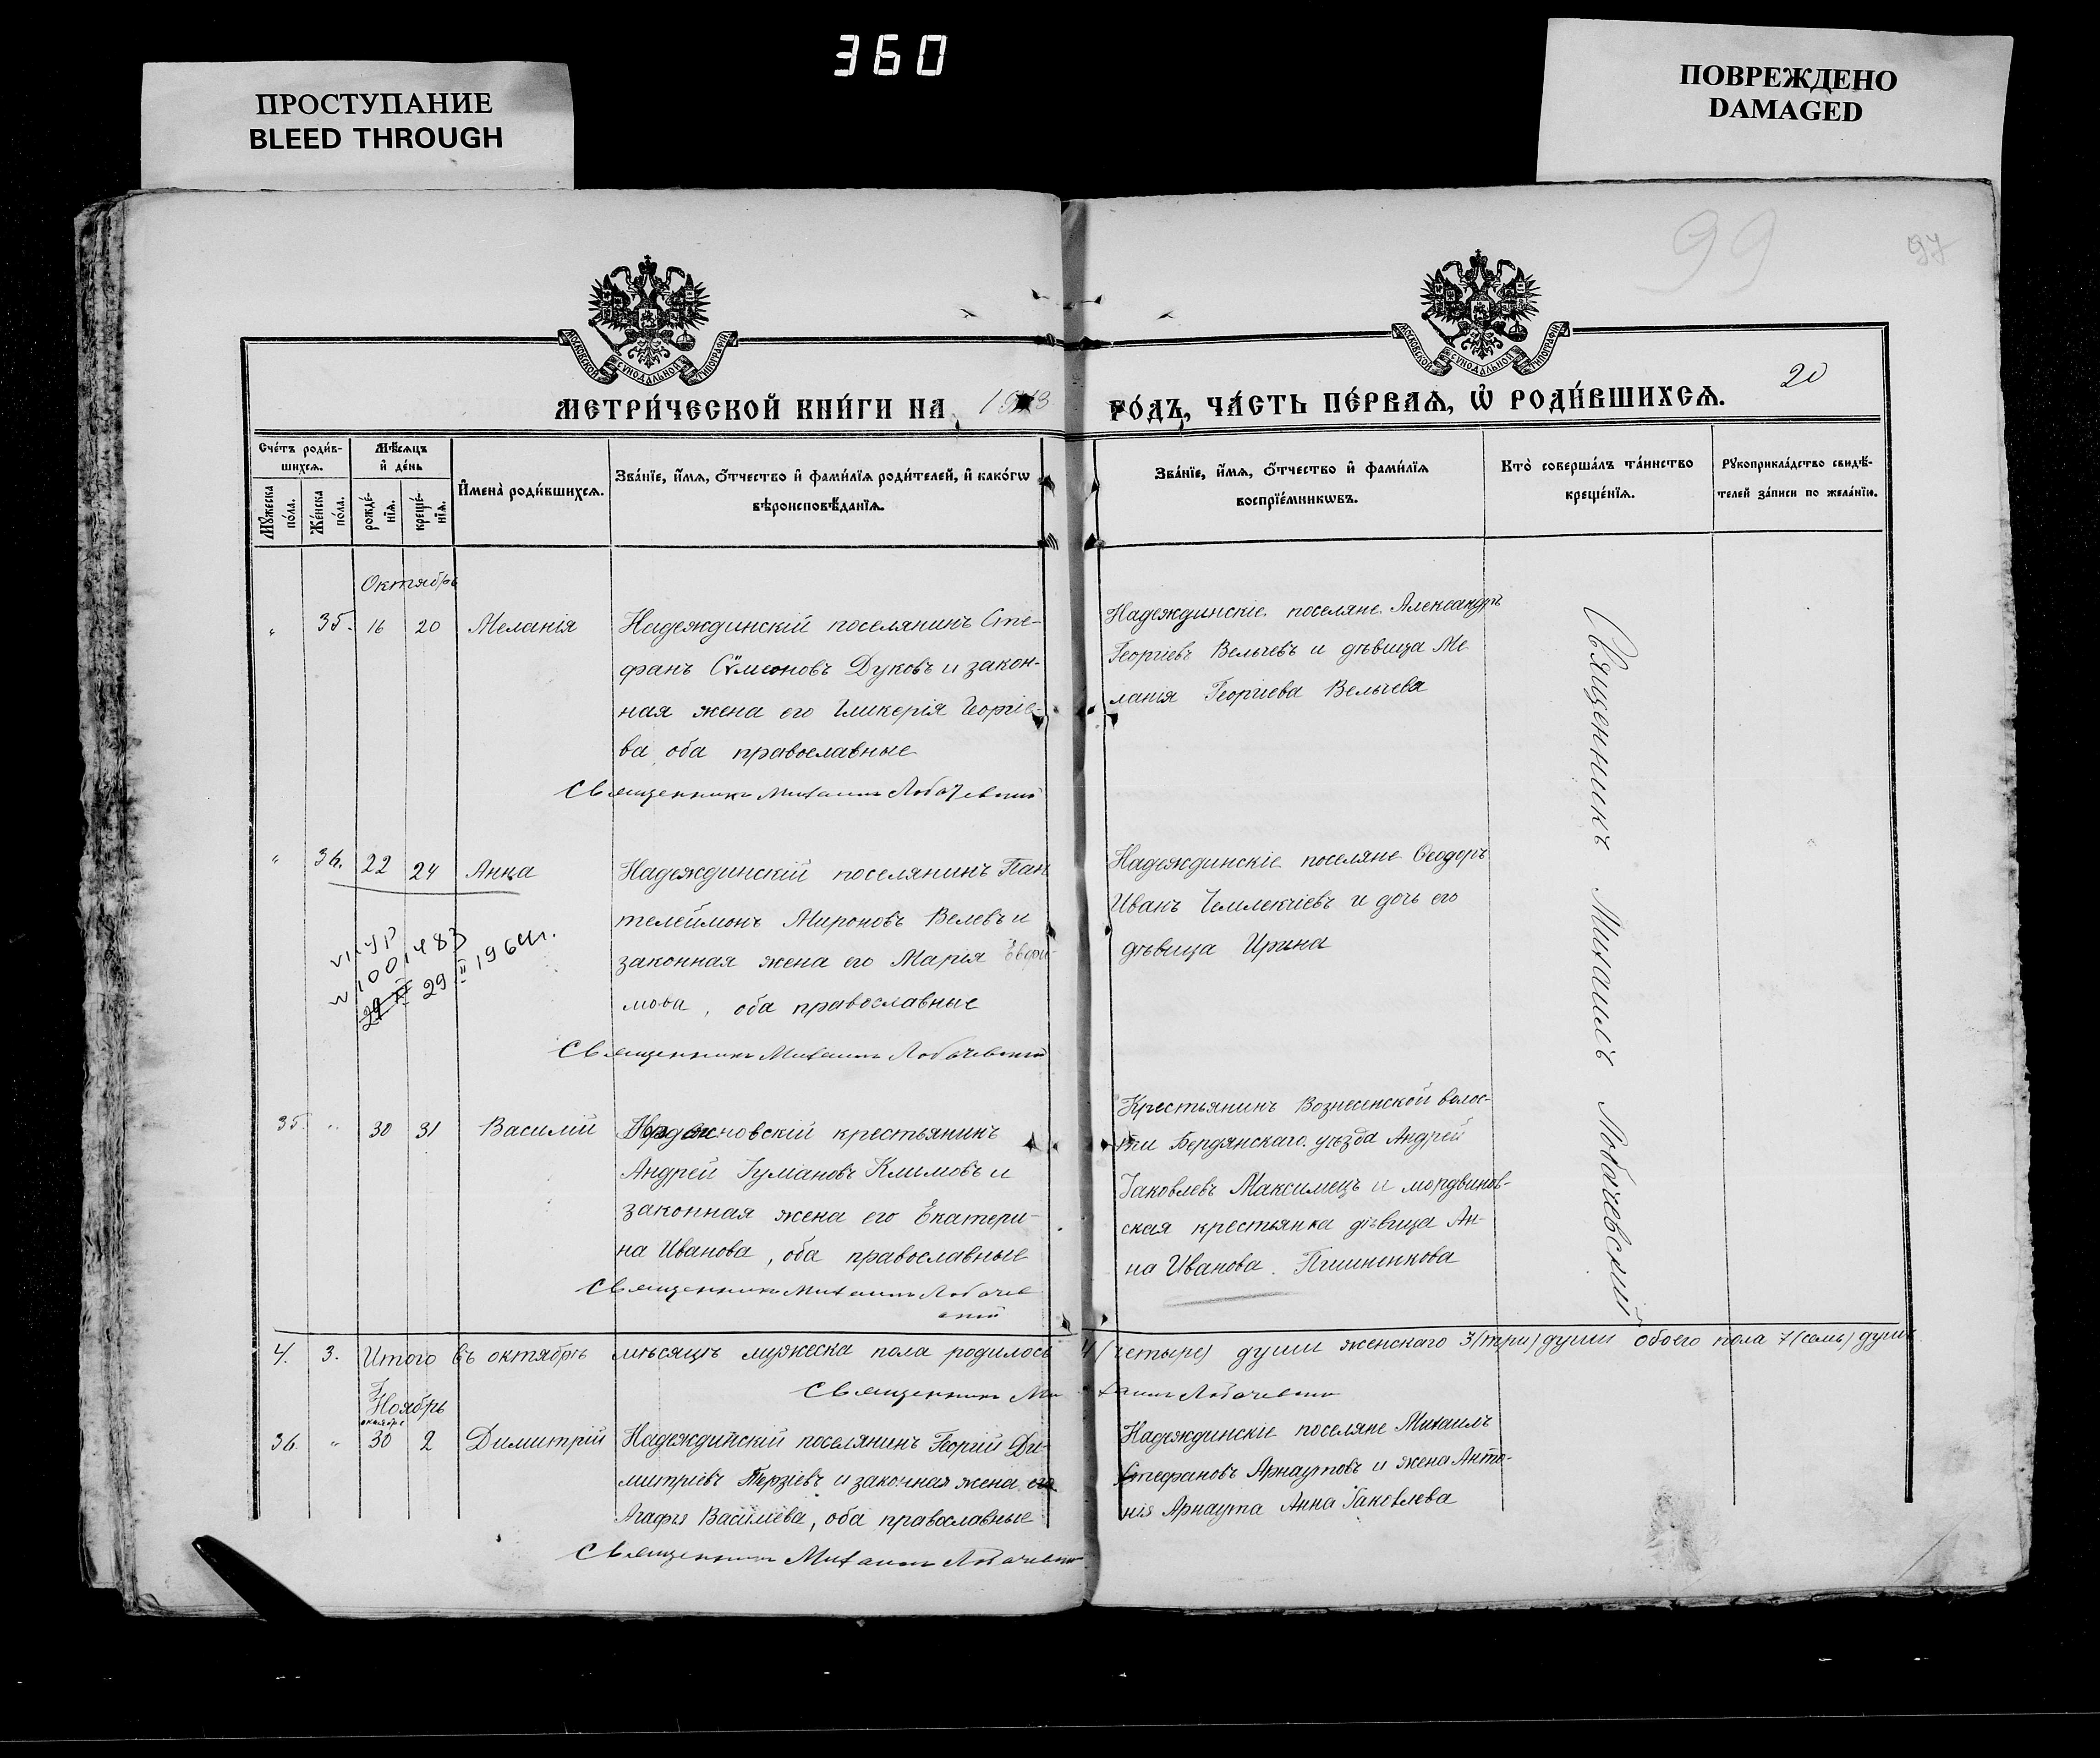 360
ПРОСТУПАНИЕ
BLEED THROUGH
ПОВРЕЖДЕНО
DAMAGED
99
97
МОСКОВСКОЙ СУНОДАЛЬНОЙ ТИПОГРАФІИ
МОСКОВСКОЙ СУНОДАЛЬНОЙ ТИПОГРАФІИ
20
МЕТРИ́ЧЕСКОЙ КНИ́ГИ НА 1913 ГО́ДЪ, ЧА́СТЬ ПЕ́РВАѦ, Ѡ҆ РОДИ́ВШИХСѦ.
Сче́тъ роди́в-
шихсѧ.
Мꙋжеска по́ла.
Же́нска по́ла.
Мѣ́сѧцъ
и҆ де́нь
рожде́-
нїѧ.
креще́-
нїѧ.
И҆мена̀ роди́вшихсѧ.
Зва́нїе, и҆́мѧ, ѻ҆́тчество и҆ фами́лїѧ роди́телей, и҆ како́гѡ
вѣроисповѣ́данїѧ.
Зва́нїе, и҆́мѧ, ѻ҆́тчество и҆ фами́лїѧ
воспрїе́мникѡвъ.
Кто̀ соверша́лъ та́инство
креще́нїѧ.
Рꙋкоприкла́дство свидѣ́-
телей за́писи по жела́нїю.
Октябрь
„ 35. 16 20 Меланія
Надеждинскій поселянинъ Сте-
фанъ Сѷмеоновъ Дуковъ и закон-
ная жена его Гликерія Георгіе-
ва оба православные
Священникъ Михаилъ Лобачевскій
Надеждинскіе поселяне Александръ
Георгіевъ Вельчевъ и дѣвица Ме
ланія Георгіева Вельчева
„ 36. 22 24 Анна
Надеждинскій поселянинъ Пан
телеймонъ Мироновъ Велевъ и
законная жена его Марія Евфи-
мова, оба православные
Священникъ Михаилъ Лобачевскій
Надеждинскіе поселяне Ѳеодоръ
Иванъ Чемлекчіевъ и дочь его
дѣвица Ирина
1001483
29 II 1964г.
35. „ 30 31 Василій
крестьянинъ
Андрей Тумановъ Климовъ и
законная жена его Екатери-
на Иванова, оба православные
Священникъ Михаилъ Лобачев
скій
Крестьянинъ Вознесенской волос-
ти Бердянскаго уѣзда Андрей
Іаковлевъ Максимецъ и мордвинов-
ская крестьянка дѣвица Ан-
на Иванова Пшиненкова
Священникъ Михаилъ Лобачевскій
4. 3. Итого въ октябрѣ мѣсяцѣ мужеска пола родилось 4 (четыре) души женскаго 3 (три) души обоего пола 7 (семь) душъ
Священникъ Михаилъ Лобачевскій
Ноябрь
октября
36. „ 30 2 Димитрій
Надеждинскій поселянинъ Георгій Ди-
митріевъ Терзіевъ и законная жена его
Агафья Василіева, оба православные
Священникъ Михаилъ Лобачевскій
Надеждинскіе поселяне Михаилъ
Стефановъ Арнаутовъ и жена Анто-
нія Арнаута Анна Іаковлева